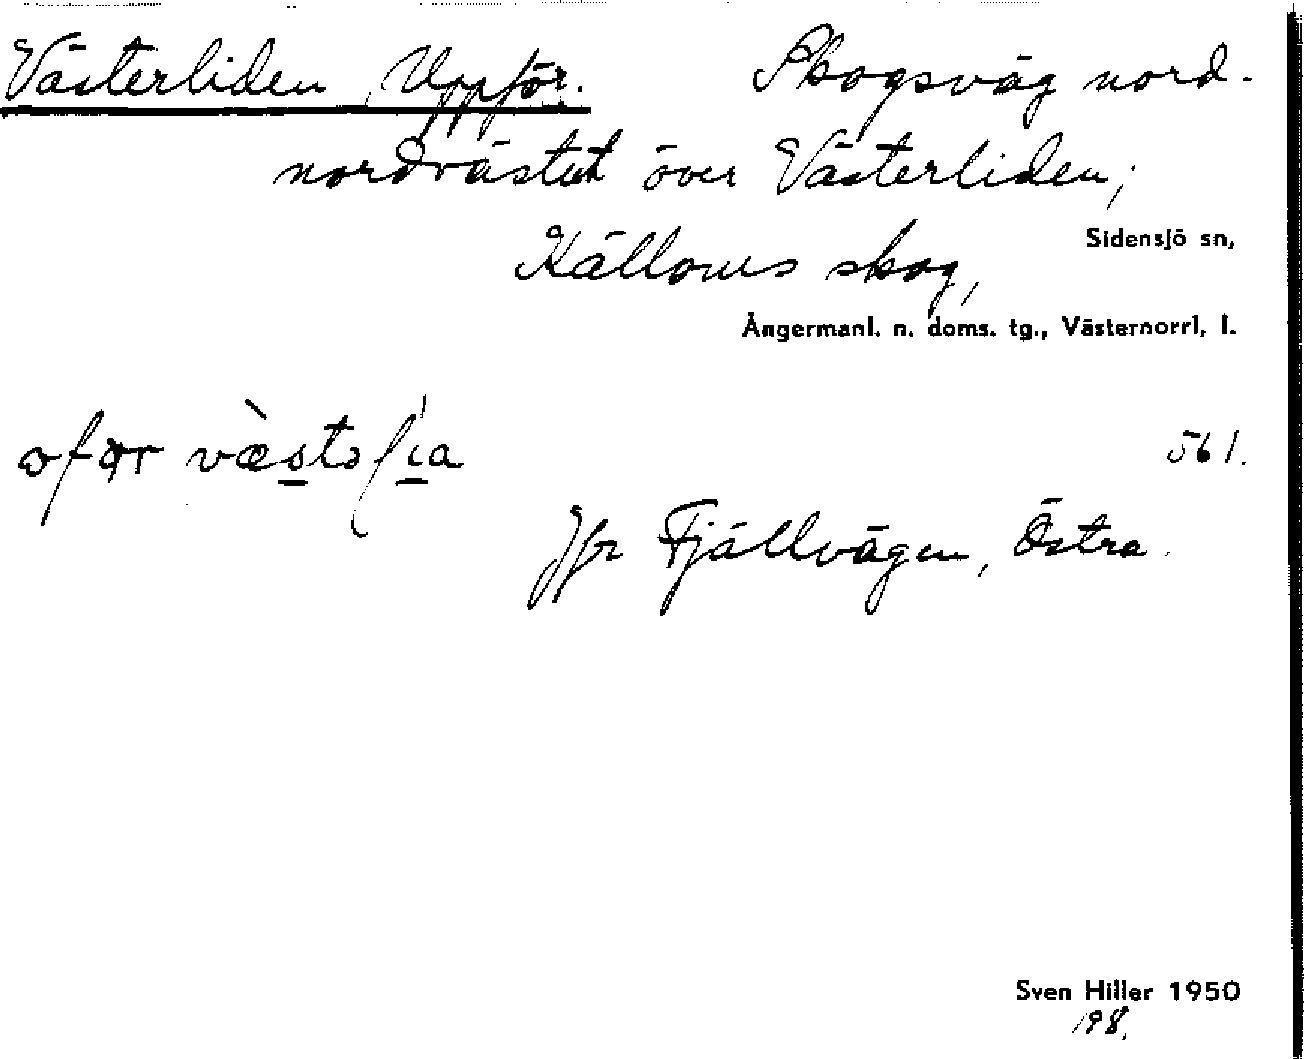 Västerliden, Uppför. Skogsväg nord-
nordvästut över Västerliden;
Sidensjö sn,
Källoms skog,
Ångermanl. n. doms. tg., Västernorrl. l.
561.
Jfr Fjällvägen, Östra.
Sven Hiller 1950
198.